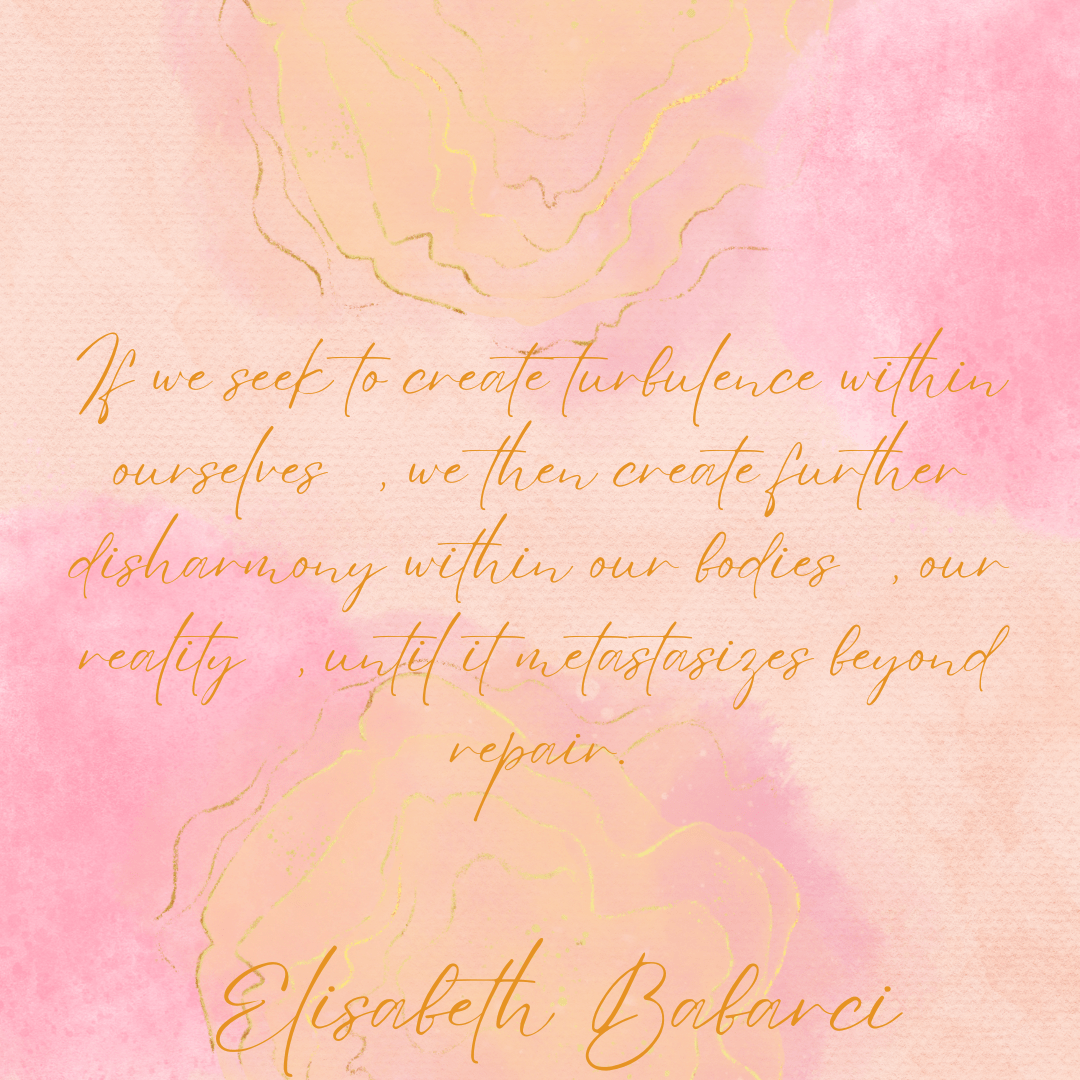 If we seek to create turbulence within
ourselves , we then create further
disharmony within our bodies , our
reality , until it metastasizes beyond
repair.
Elisabeth Babarci